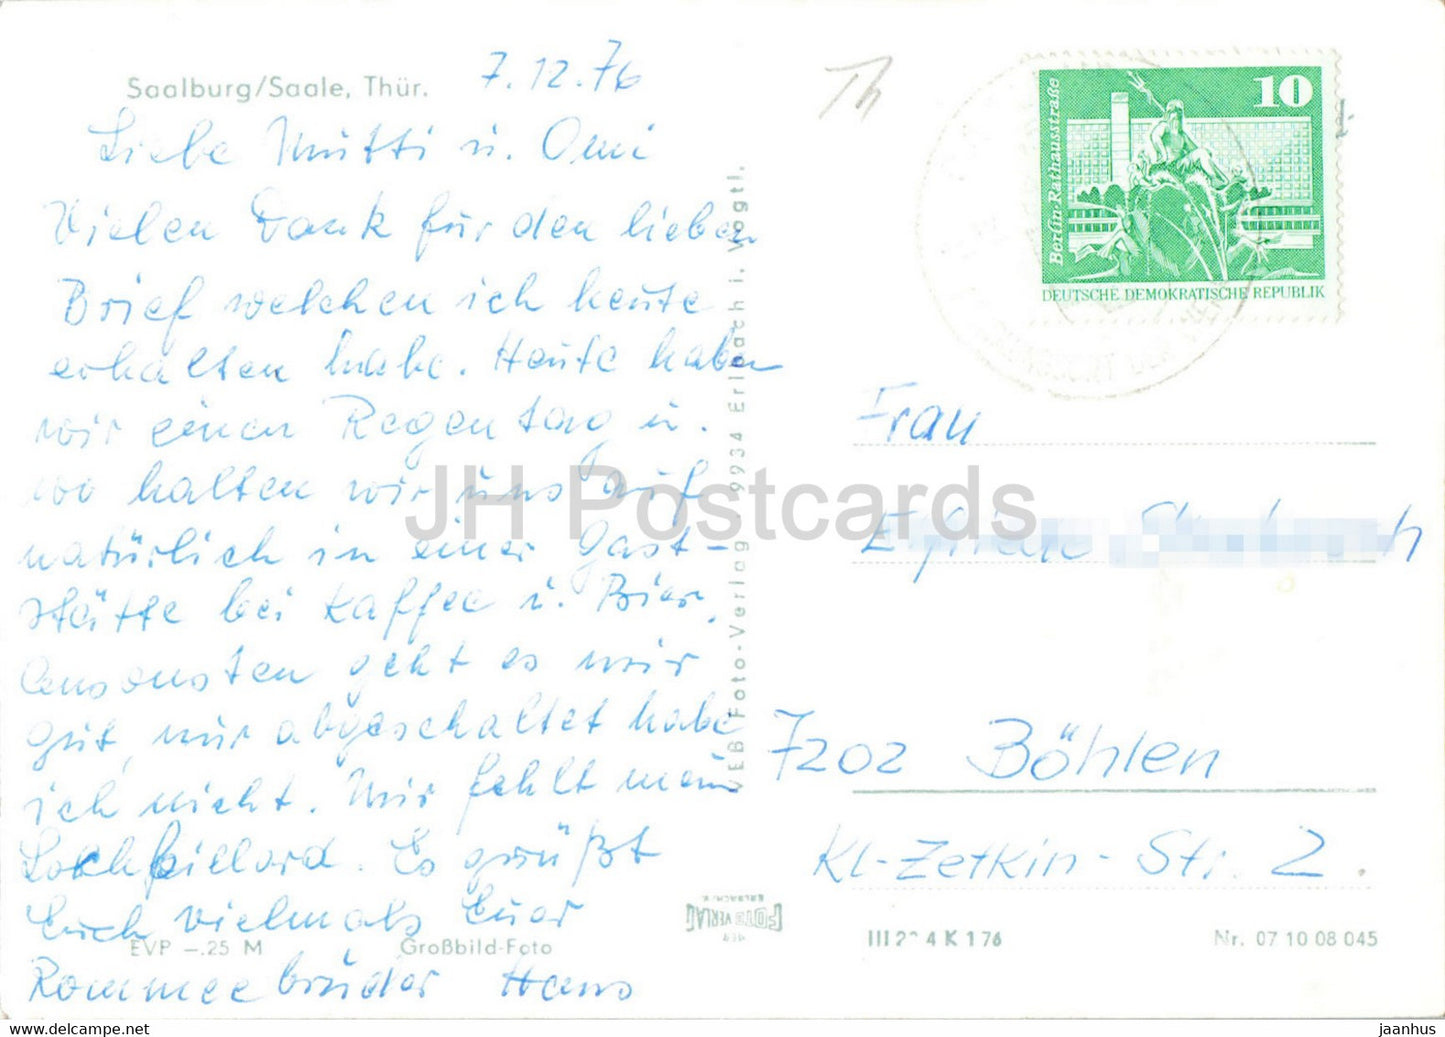 Saalburg/Saale, Thür.
7.12.76
Liebe Mutti u. Omi
Vielen Dank für den lieben
Brief welchen ich heute
erhalten habe. Heute haben
wir einen Regentag u.
wo halten wir uns auf
natürlich in einer Gast-
stätte bei Kaffee u. Bier.
Ansonsten geht es mir
gut, nur abgeschaltet habe
ich nicht. Mir fehlt mein
Lochbillard. Es grüßt
Euch vielmals Euer
Rommeebrüder Hans
EVP –.25 M
Großbild-Foto
VEB Foto-Verlag 9934 Erlbach i. Vogtl.
FOTO VERLAG
Th
10
Berlin-Rathausstraße
DEUTSCHE DEMOKRATISCHE REPUBLIK
Frau
7202 Böhlen
Kl-Zetkin-Str. 2.
4 K 1 76
Nr. 07 10 08 045
JH Postcards
www.delcampe.net
jaanhus